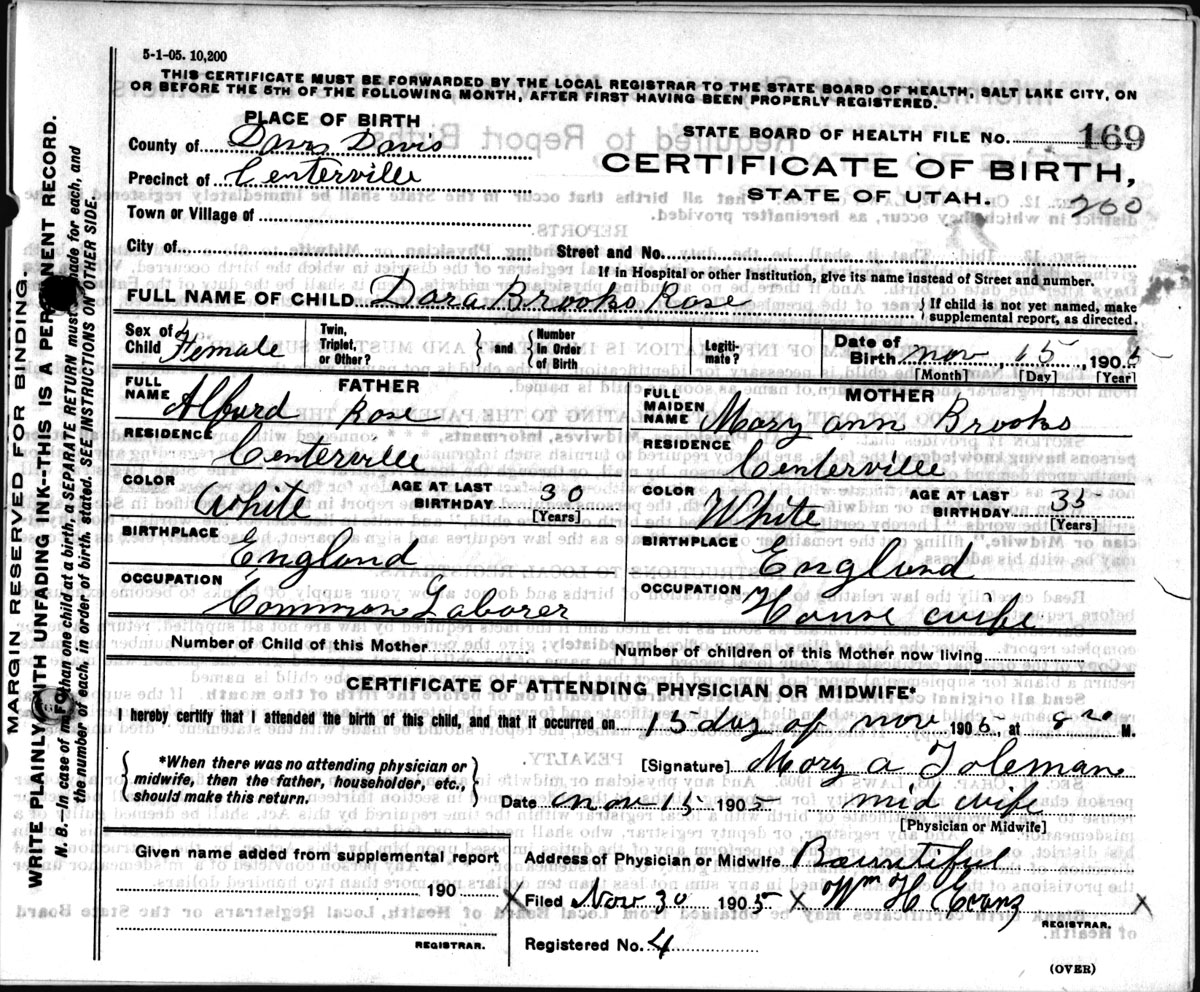 5-1-05. 10,200
THIS CERTIFICATE MUST BE FORWARDED BY THE LOCAL REGISTRAR TO THE STATE BOARD OF HEALTH, SALT LAKE CITY, ON
OR BEFORE THE 5TH OF THE FOLLOWING MONTH, AFTER FIRST HAVING BEEN PROPERLY REGISTERED.
PLACE OF BIRTH
County of Davis Davis
Precinct of Centerville
Town or Village of
City of
Street and No.
STATE BOARD OF HEALTH FILE No. 169
CERTIFICATE OF BIRTH,
STATE OF UTAH.
200
If in Hospital or other Institution, give its name instead of Street and number.
FULL NAME OF CHILD Dara Brooks Rose
If child is not yet named, make
supplemental report, as directed.
Sex of Child Female
Twin, Triplet, or Other?
and
Number in Order of Birth
Legiti-mate?
Date of Birth Nov 15 1905
[Month] [Day] [Year]
FATHER
FULL NAME Alburd Rose
RESIDENCE Centerville
COLOR White AGE AT LAST BIRTHDAY 30
[Years]
BIRTHPLACE England
OCCUPATION Common Laborer
MOTHER
FULL MAIDEN NAME Mary ann Brooks
RESIDENCE Centerville
COLOR White AGE AT LAST BIRTHDAY 35
[Years]
BIRTHPLACE England
OCCUPATION House wife
Number of Child of this Mother
Number of children of this Mother now living
CERTIFICATE OF ATTENDING PHYSICIAN OR MIDWIFE*
I hereby certify that I attended the birth of this child, and that it occurred on 15 day of nov 1905, at M.
*When there was no attending physician or
midwife, then the father, householder, etc.,
should make this return.
[Signature] Mary a Toleman
Date nov 15 1905 mid wife
[Physician or Midwife]
Given name added from supplemental report
190
REGISTRAR.
Address of Physician or Midwife Bountiful
X Filed Nov 30 1905 X Wm H Evans X
REGISTRAR.
Registered No. 4
(OVER)
MARGIN RESERVED FOR BINDING.
WRITE PLAINLY WITH UNFADING INK--THIS IS A PERMANENT RECORD.
N. B.—In case of more than one child at a birth, a SEPARATE RETURN must be made for each, and
the number of each, in order of birth, stated. SEE INSTRUCTIONS ON OTHER SIDE.